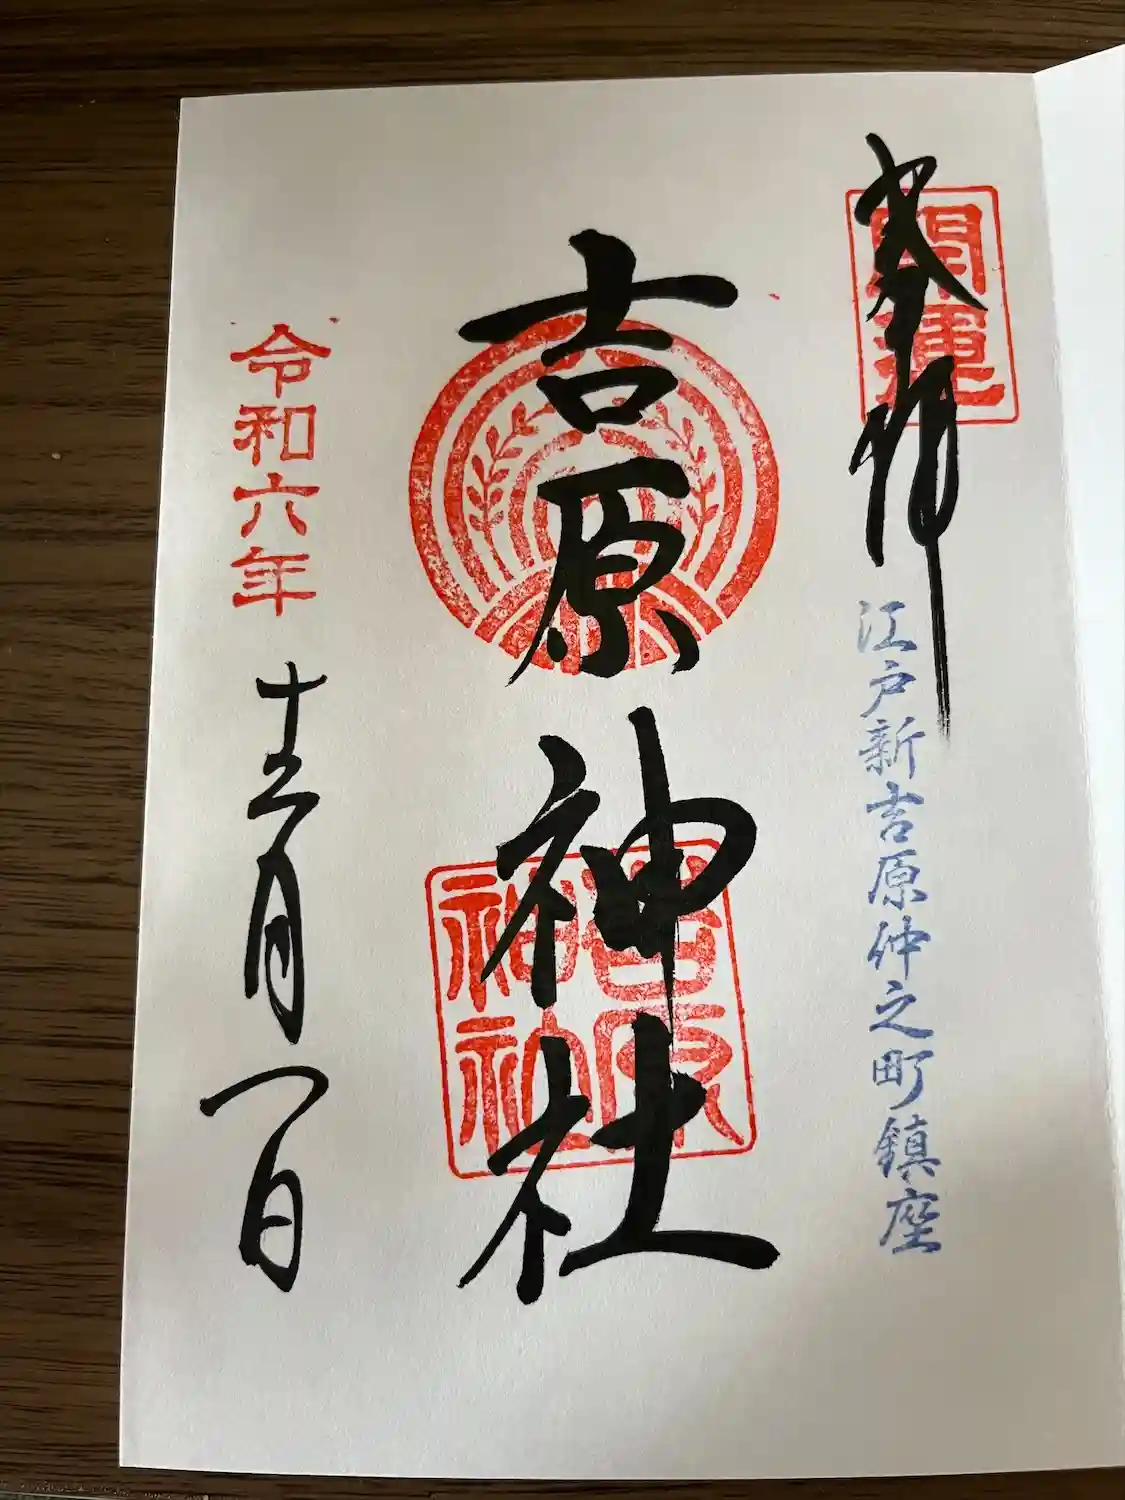 奉拝
開運
江戸新吉原仲之町鎮座
吉原神社
吉原
神社
令和六年
十二月一日